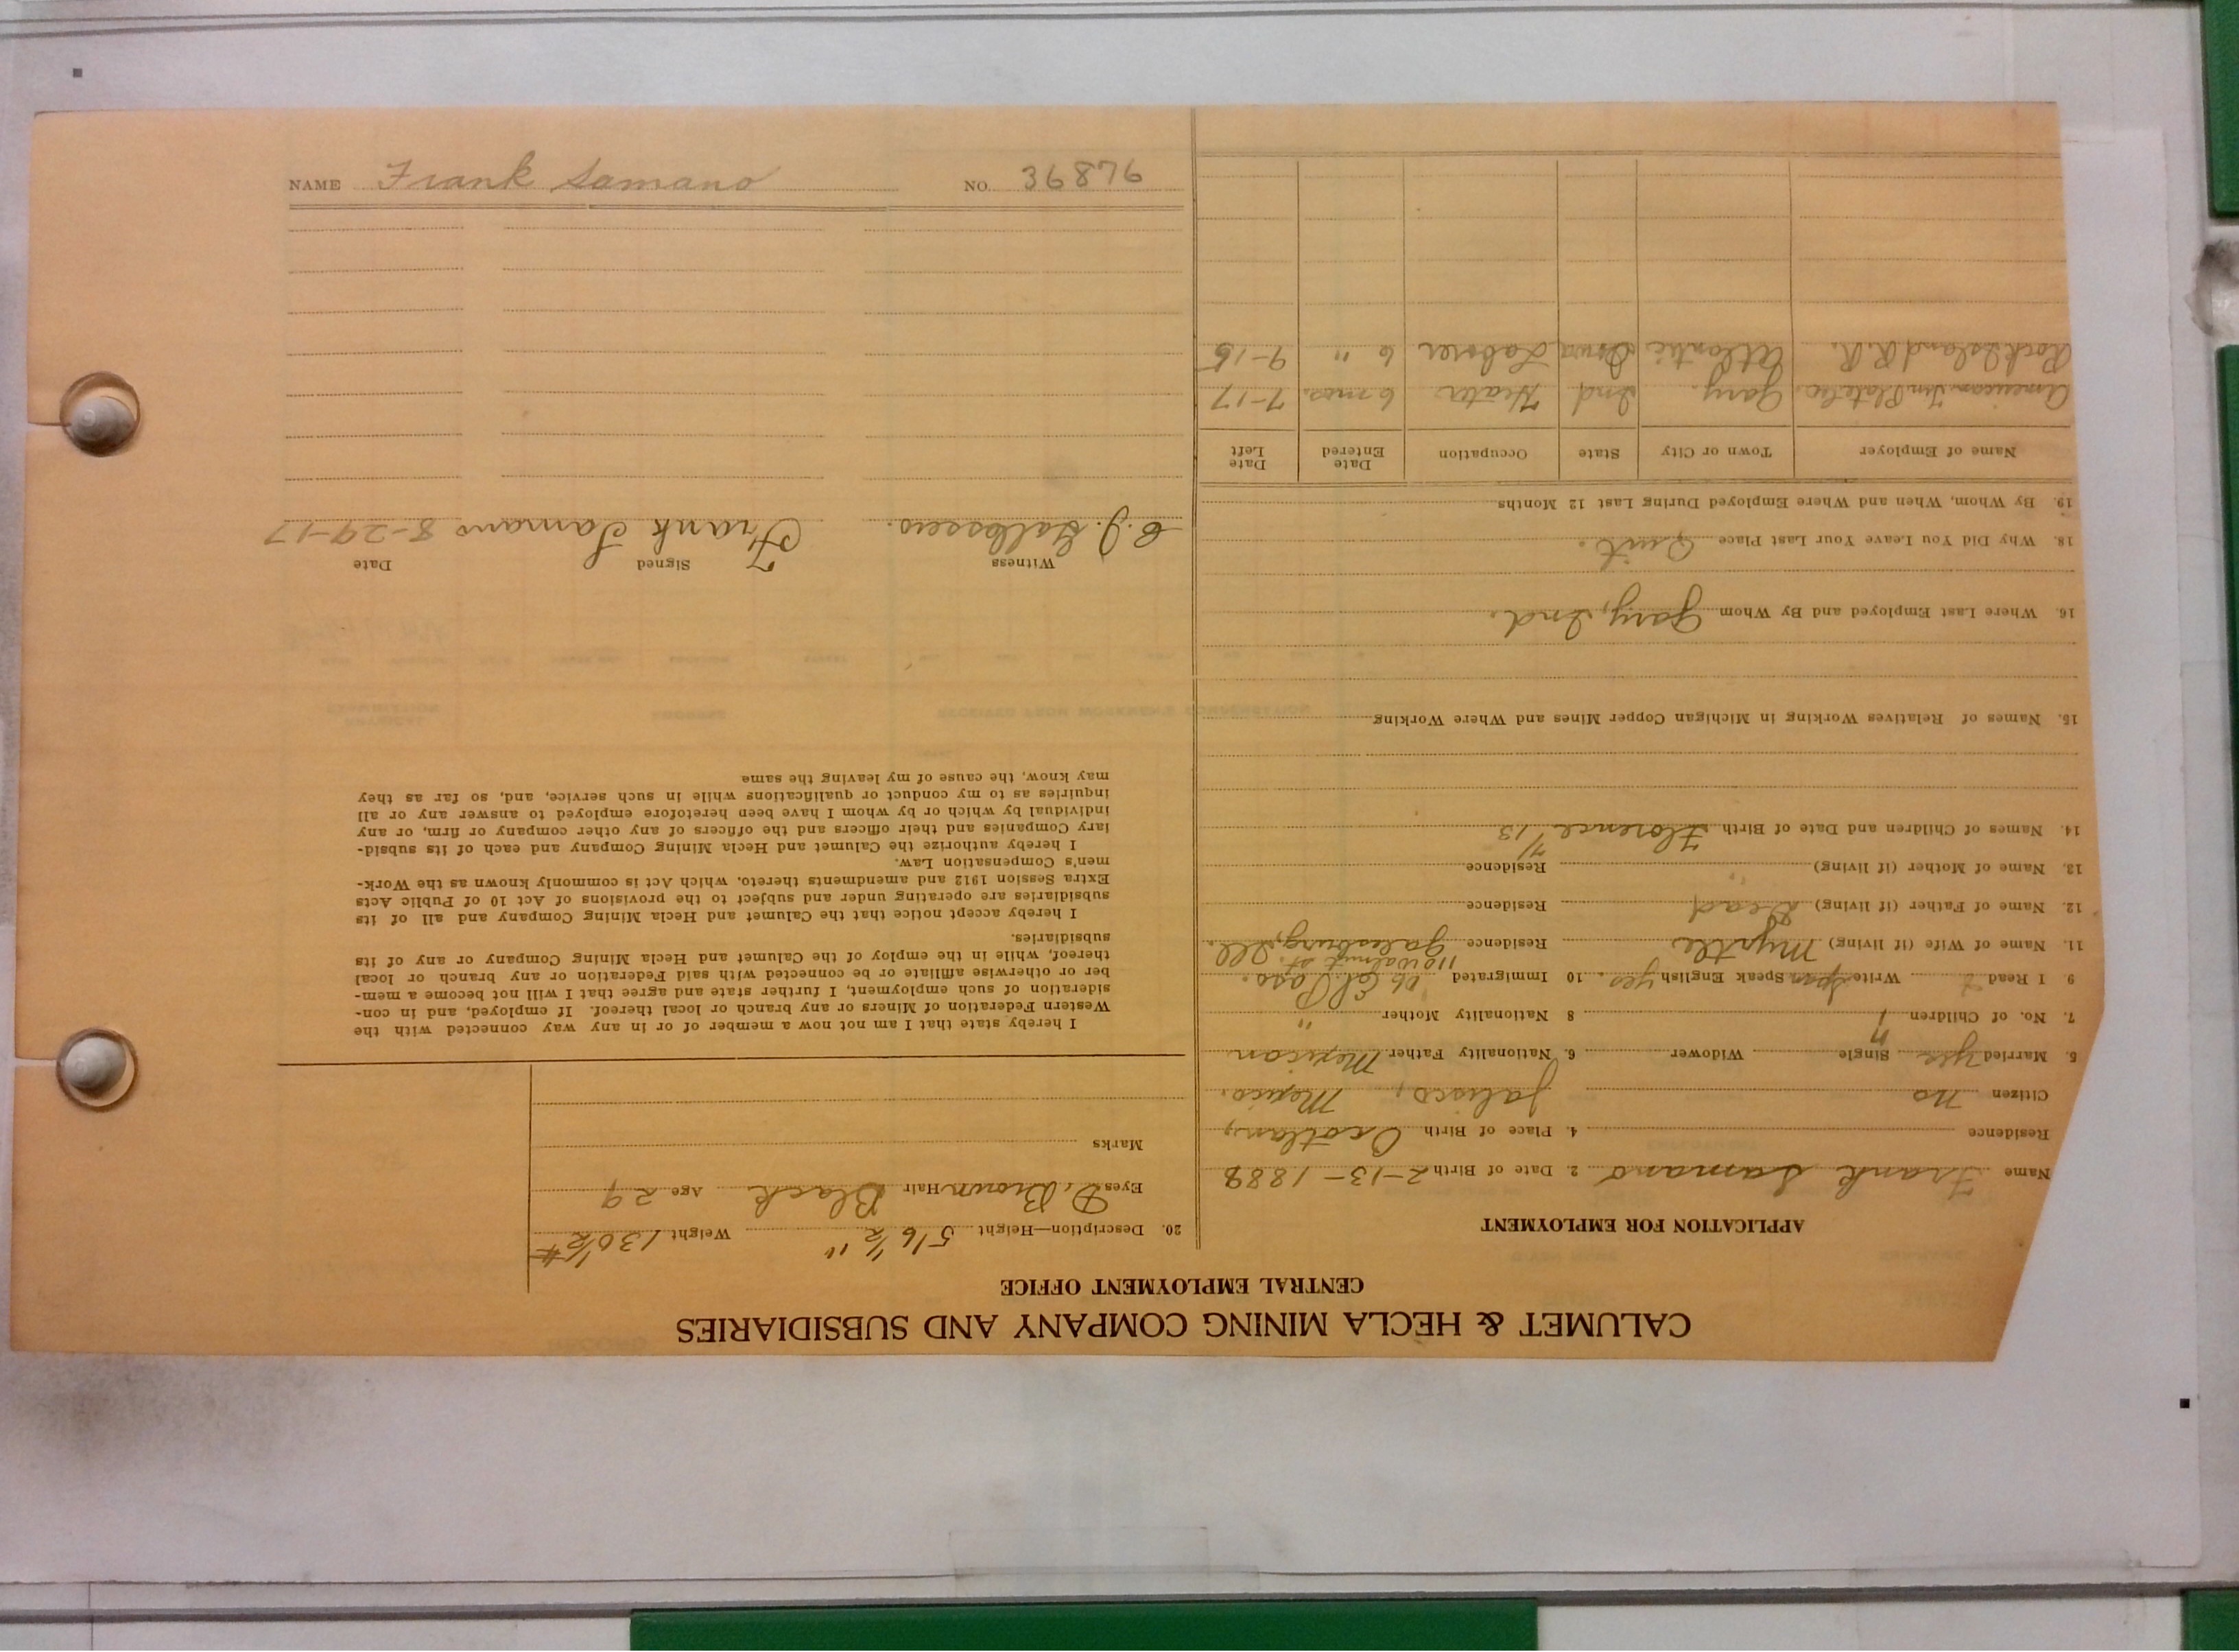 CALUMET & HECLA MINING COMPANY AND SUBSIDIARIES
CENTRAL EMPLOYMENT OFFICE
APPLICATION FOR EMPLOYMENT
Name Frank Samano 2. Date of Birth 2-13-1888
Residence 4. Place of Birth Ocotlan,
Citizen no Jalisco, Mexico.
5. Married yes Single Widower 6. Nationality Father Mexican
7. No. of Children 1 8 Nationality Mother "
9 I Read Write Span Speak English yes. 10 Immigrated 06 El Paso.
110 Walnut St.
11. Name of Wife (if living) Myrtle Residence Galesburg, Ill.
12. Name of Father (if living) Dead Residence
13. Name of Mother (if living) " Residence
14. Names of Children and Date of Birth Florence 7/13
15. Names of Relatives Working in Michigan Copper Mines and Where Working
16. Where Last Employed and By Whom Gary, Ind.
18. Why Did You Leave Your Last Place Quit.
19. By Whom, When and Where Employed During Last 12 Months
Name of Employer Town or City State Occupation Date Entered Date Left
American Tin Plate Co. Gary. Ind Heater 6 mos. 7-17
Rock Island R.R. Atlantic Iowa Laborer 6 " 9-15
20. Description—Height 5'6 1/2" Weight 130 1/2 #
Eyes D. Brown Hair Black Age 29
Marks
I hereby state that I am not now a member of or in any way connected with the
Western Federation of Miners or any branch or local thereof. If employed, and in con-
sideration of such employment, I further state and agree that I will not become a mem-
ber or otherwise affiliate or be connected with said Federation or any branch or local
thereof, while in the employ of the Calumet and Hecla Mining Company or any of its
subsidiaries.
I hereby accept notice that the Calumet and Hecla Mining Company and all of its
subsidiaries are operating under and subject to the provisions of Act 10 of Public Acts
Extra Session 1912 and amendments thereto, which Act is commonly known as the Work-
men's Compensation Law.
I hereby authorize the Calumet and Hecla Mining Company and each of its subsid-
iary Companies and their officers and the officers of any other company or firm, or any
individual by which or by whom I have been heretofore employed to answer any or all
inquiries as to my conduct or qualifications while in such service, and, so far as they
may know, the cause of my leaving the same
Witness Signed Date
Frank Samano 8-29-17
NAME Frank Samano NO. 36876